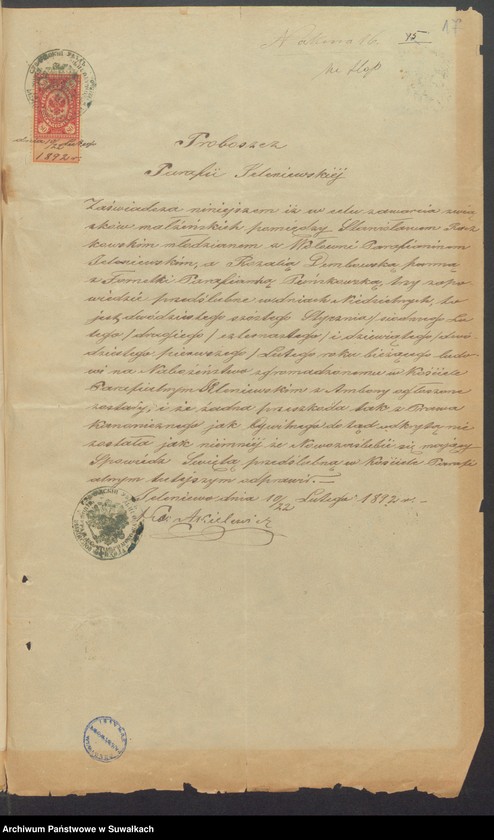 17
N aktu 16. 45
Proboszcz
Parafii Jeleniewskiéj
dnia 10/22 Lutego
1892 r.
Zaświadcza niniejszem iż w celu zawarcia zwią-
zków małżeńskich pomiędzy Stanisławem
kowskim młodzianem z Parafianinem
Jeleniewskim, a Rozalią Dembowską panną
z Parafianką, trzy zapo-
wiedzie przedślubne w dniach Niedzielnych, to
jest, dwódziestego szóstego Stycznia/siódmego Lu-
tego/drugiego/czternastego/i dziewiątego/dwó-
dziestego pierwszego/Lutego roku bieżącego ludo-
wi na Nabożeństwo zgromadzonemu w Kościele
Parafialnym Jeleniewskim z Ambony ogłoszone
zostały, i że żadna przeszkoda tak z Prawa
Kanonicznego jak Cywilnego do tąd odkrytą nie
została jak niemniéj że Nowozaślubić się mający
Spowiedź Świętą przedślubną w Kościele Parafi-
alnym tutejszym odprawił.
Jeleniewo dnia 10/22 Lutego 1892 r.
Archiwum Państwowe w Suwałkach